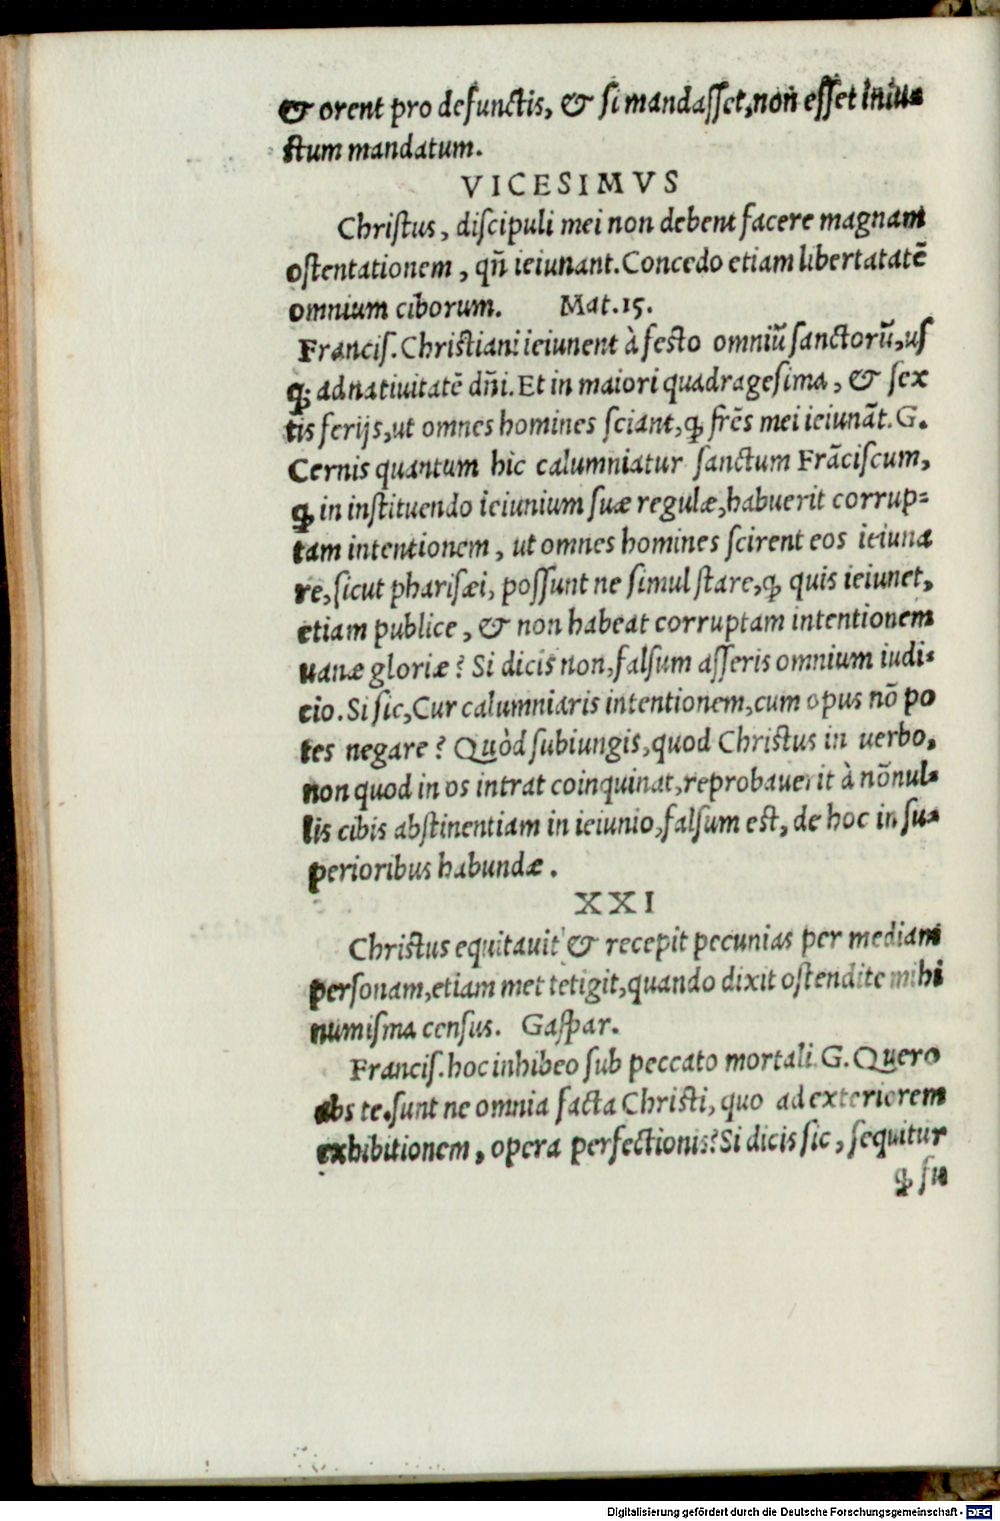 & orent pro defunctis, & ſi mandaſſet,non eſſet iniu-
ſtum mandatum.
VICESIMVS
Chriſtus, diſcipuli mei non debent facere magnam
oſtentationem, qñ ieiunant. Concedo etiam libertatatẽ
omnium ciborum. Mat.15.
Franciſ. Chriſtiani ieiunent à feſto omniũ ſanctorũ,uſ
q; ad natiuitatẽ dñi. Et in maiori quadrageſima, & ſex
tis ferijs,ut omnes homines ſciant,ꝙ frẽs mei ieiunãt. G.
Cernis quantum hic calumniatur ſanctum Frãciſcum,
ꝙ in inſtituendo ieiunium ſuæ regulæ,habuerit corrup=
tam intentionem, ut omnes homines ſcirent eos ieiuna
re,ſicut phariſæi, poſſunt ne ſimul ſtare,ꝙ quis ieiunet,
etiam publice, & non habeat corruptam intentionem
uanæ gloriæ? Si dicis non,falſum aſſeris omnium iudi-
cio. Si ſic,Cur calumniaris intentionem,cum opus nõ po
tes negare? Quòd ſubiungis,quod Chriſtus in uerbo,
non quod in os intrat coinquinat,reprobauerit à nõnul-
lis cibis abſtinentiam in ieiunio,falſum eſt, de hoc in ſu-
perioribus habundæ.
XXI
Chriſtus equitauit & recepit pecunias per mediam
perſonam,etiam met tetigit,quando dixit oſtendite mihi
numiſma cenſus. Gaſpar.
Franciſ. hoc inhibeo ſub peccato mortali. G. Quero
abs te.ſunt ne omnia facta Chriſti, quo ad exteriorem
exhibitionem, opera perfectionis? Si dicis ſic, ſequitur
ꝙ ſu
Digitalisierung gefördert durch die Deutsche Forschungsgemeinschaft - DFG